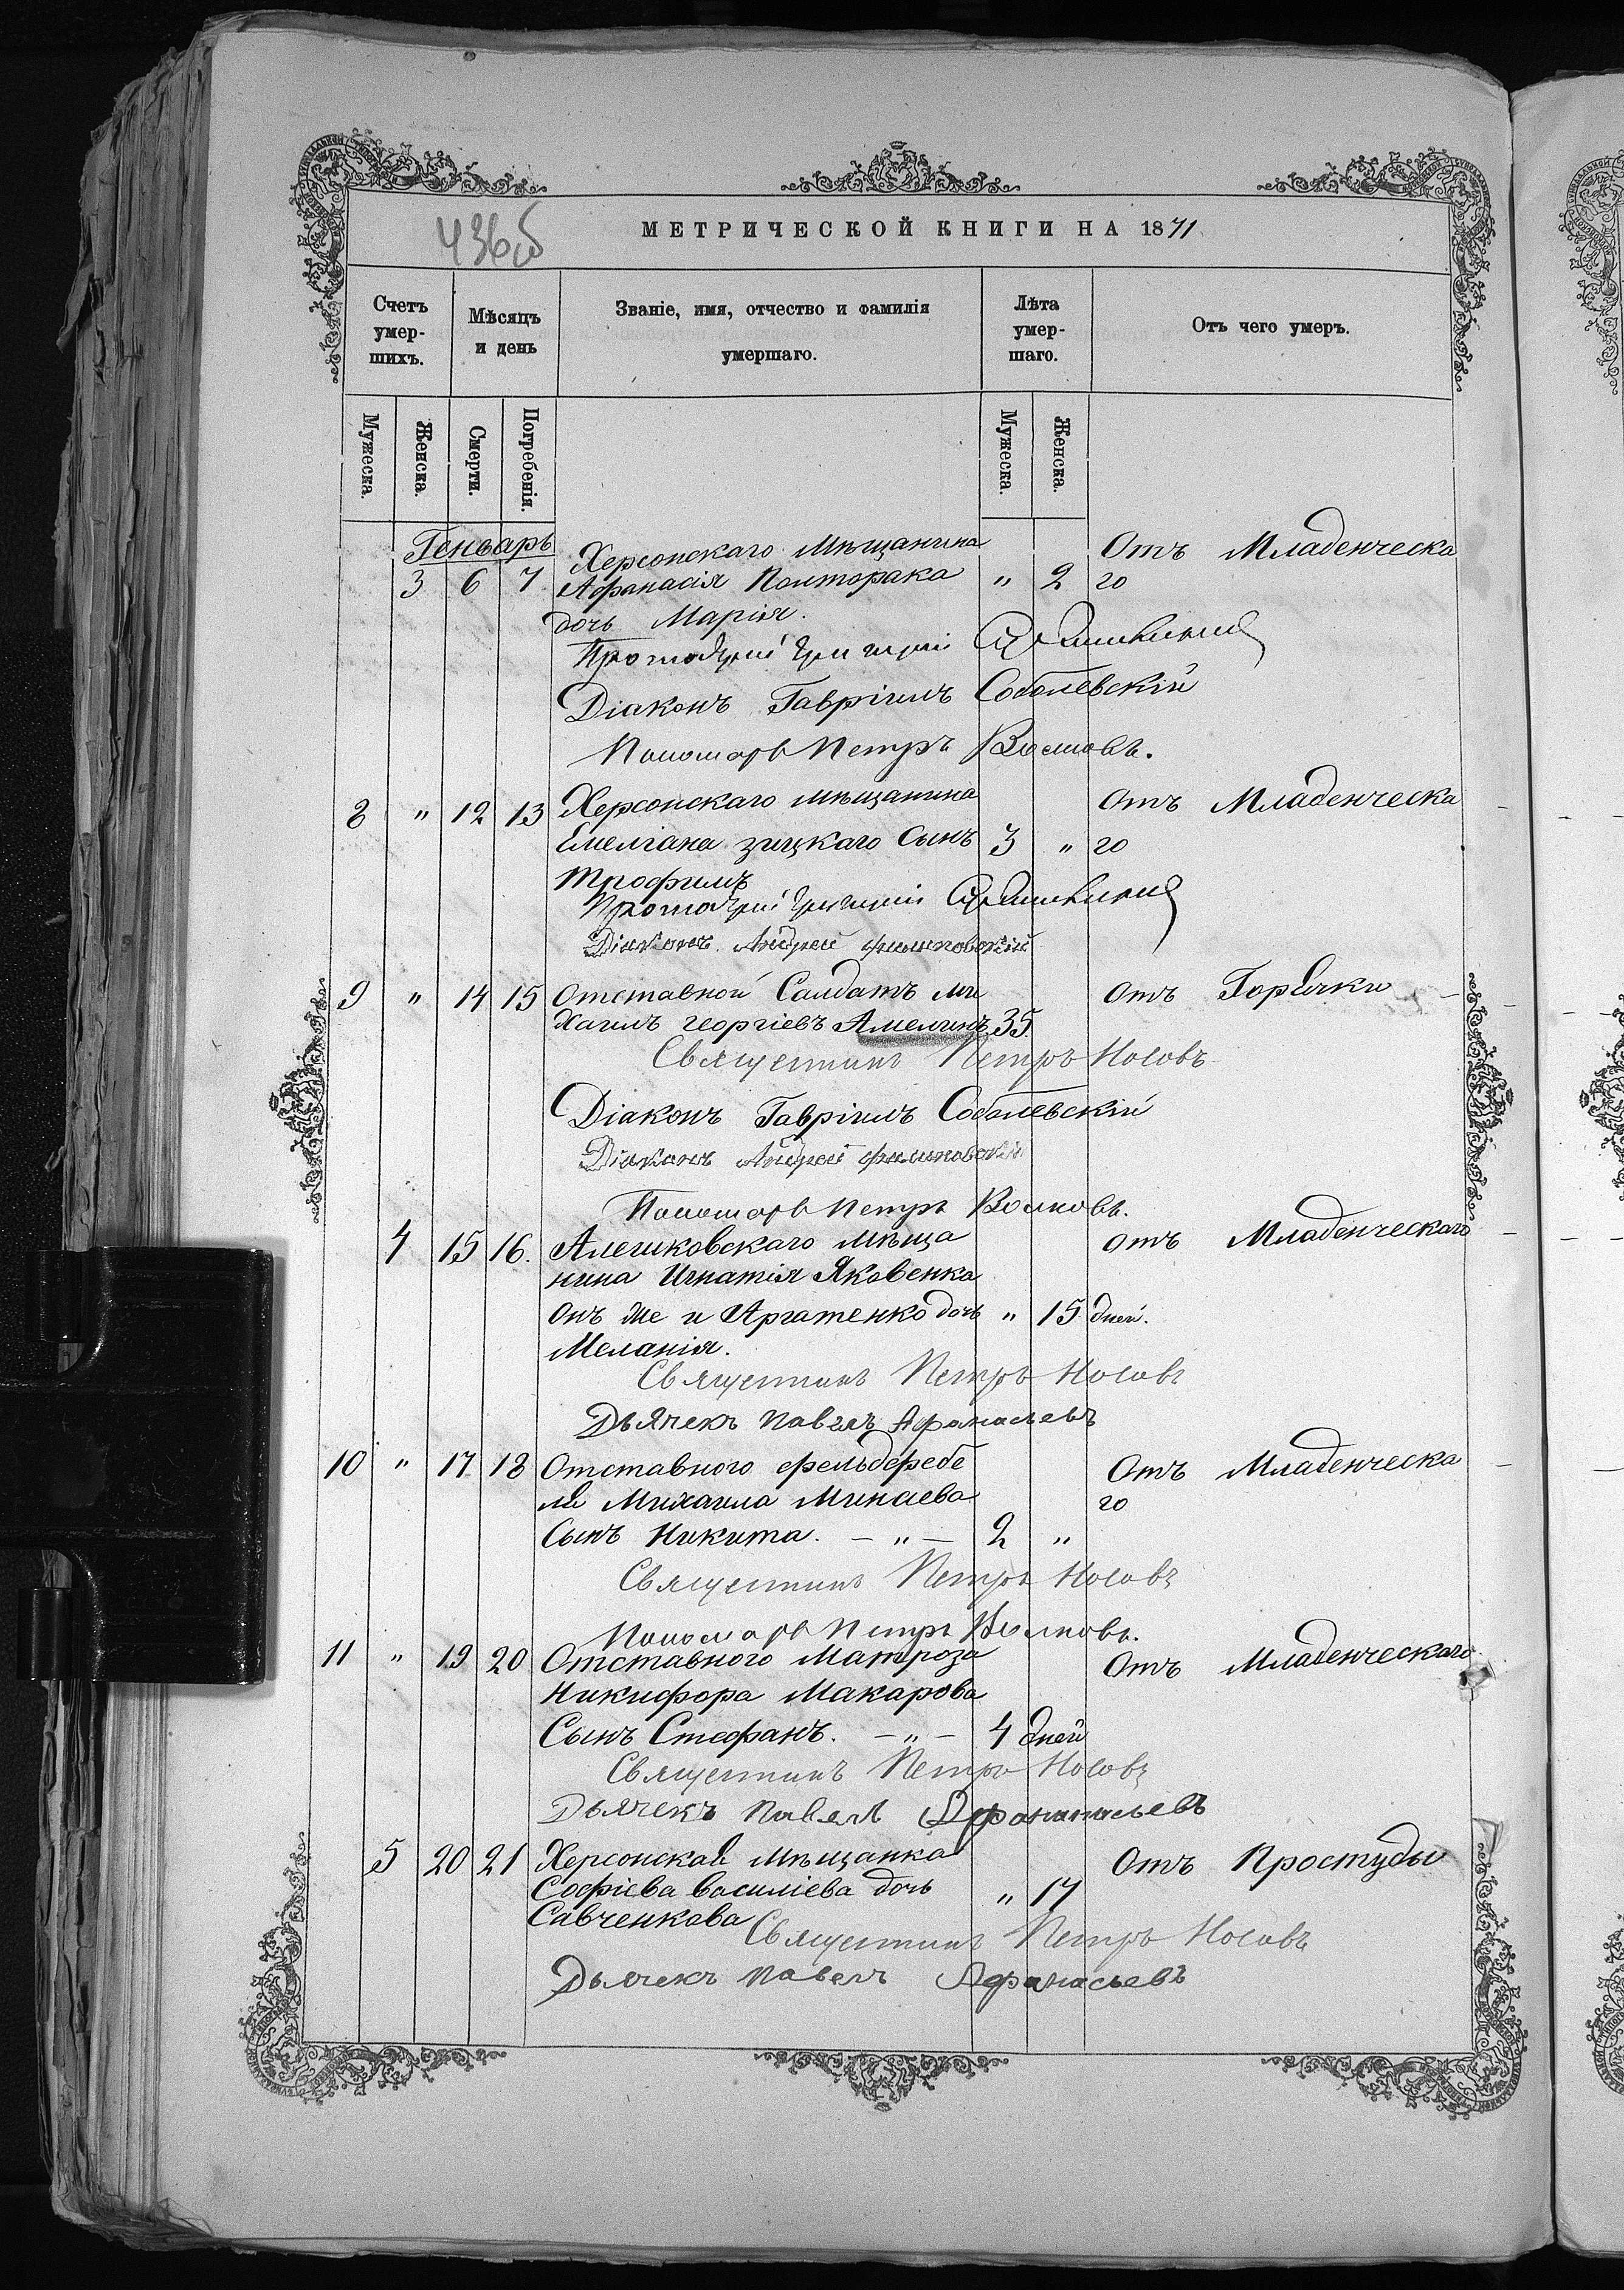 436об
МЕТРИЧЕСКОЙ КНИГИ НА 1871
Счетъ умер-шихъ.
Мѣсяцъ и день
Званіе, имя, отчество и фамилія
умершаго.
Лѣта умер-шаго.
Отъ чего умеръ.
Мужеска.
Женска.
Смерти.
Погребенія.
Мужеска.
Женска.
Генварь
Херсонскаго мѣщанина Отъ Младенческа
3 6 7 Афанасія Полторака " 2 го
дочь Марія.
Протоіерей Григорій
Діаконъ Гавріилъ Соболевскій
Пономарь Петръ Волковъ.
8 " 12 13 Херсонскаго мѣщанина Отъ Младенческа
Емеліана зицкаго Сынъ 3 " го
Трофимъ
Протоіерей Григорій
Діаконъ Андрей
9 " 14 15 Отставной Салдатъ ми Отъ Горячки
хаилъ георгіевъ Амелинъ 35.
Священникъ Петръ Носовъ
Діаконъ Гавріилъ Соболевскій
Діаконъ Андрей
Пономарь Петръ Волковъ.
4 15 16. Алешковскаго мѣща Отъ Младенческаго
нина Игнатія Яковенка
онъ же и Аргатенко дочь " 15 дней.
Меланія.
Священникъ Петръ Носовъ
Дьячекъ Павелъ Афанасьевъ
10 " 17 18 Отставного фельдфебе Отъ Младенческа
ля Михаила Минаева го
Сынъ Никита. — " — 2 "
Священникъ Петръ Носовъ
Пономарь Петръ Волковъ.
11 " 19 20 Отставного Матроза Отъ Младенческаго
Никифора Макарова
Сынъ Стефанъ. — " — 4 дней
Священникъ Петръ Носовъ
Дьячекъ Павелъ Афонанасьевъ
5 20 21 Херсонская Мѣщанка Отъ Простуды
Софіева василіева дочь " 17
Савченкова
Священникъ Петръ Носовъ
Дьячекъ Павелъ Афанасьевъ